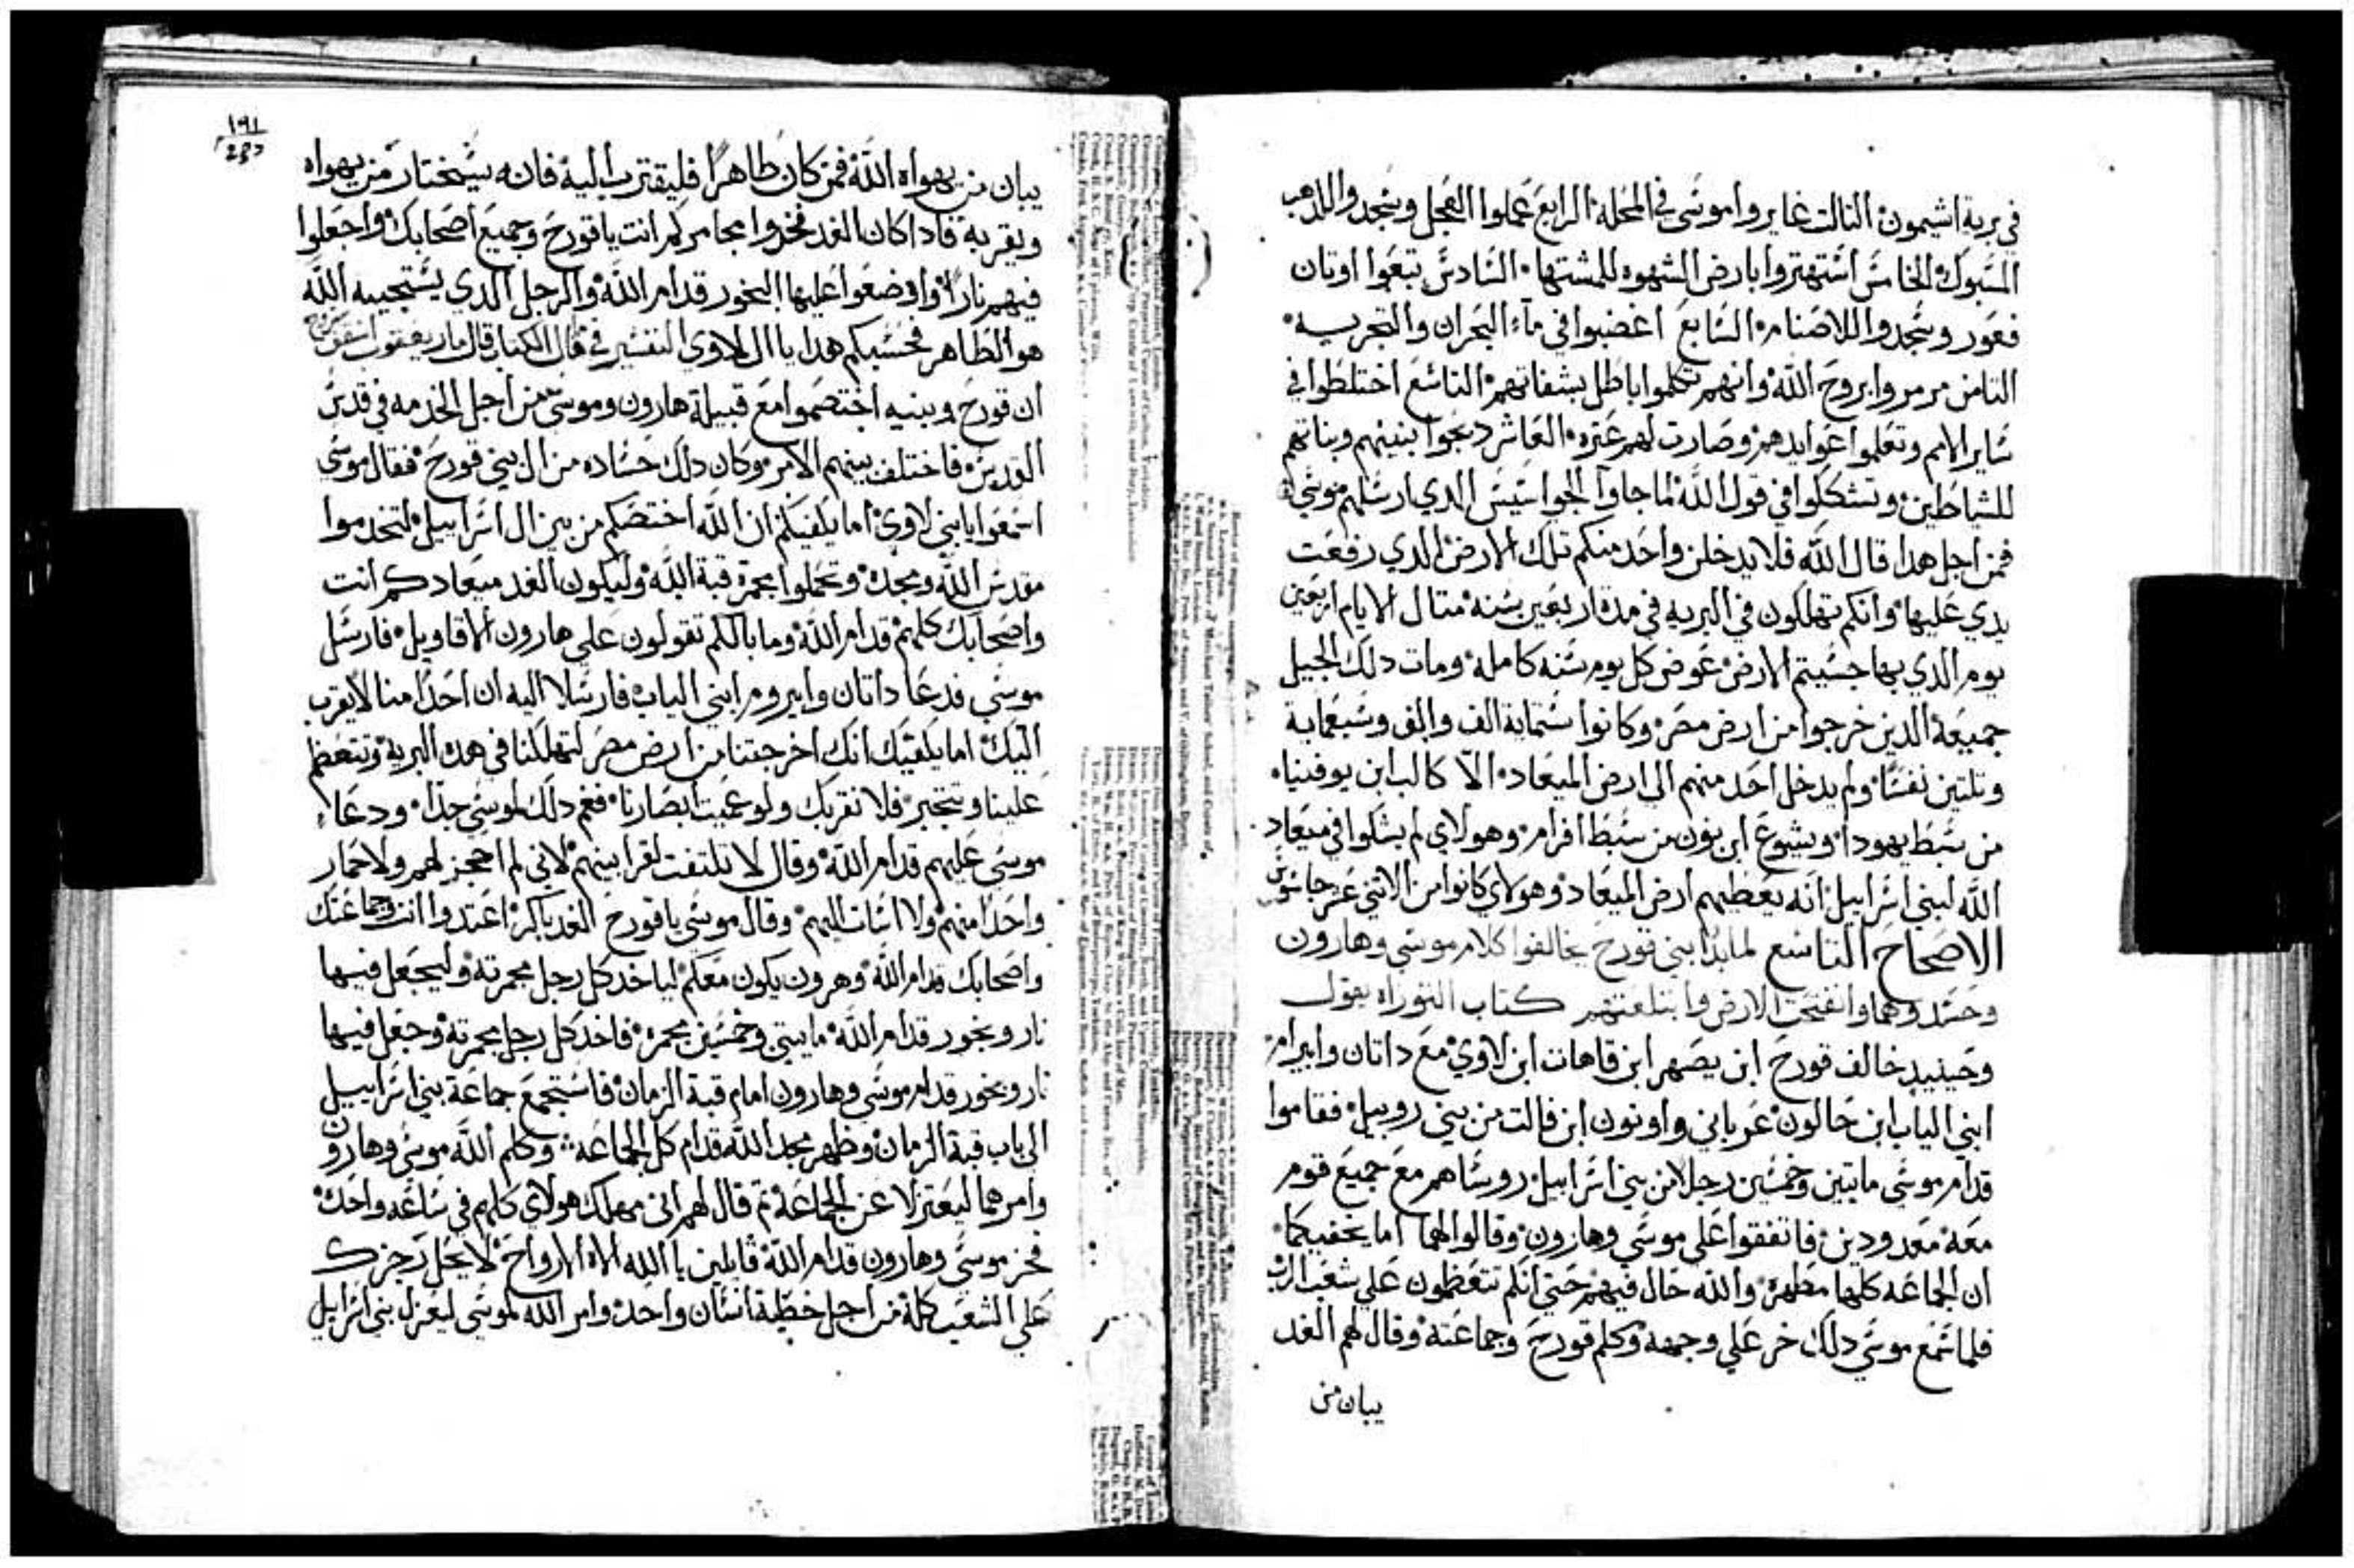 في برية اشيمون الثالت غايروا موسى في المحلة الرابع عملوا العجل وسجدوا للدهب
المسبوك الخامس اشتهتروا بارض الشهوه للمشتها السادس تبعوا اوتان
فعور وسجدوا للاصنام السابع اغضبوا في ماء البحران والتجربه
التامن مرمروا بروح الله وانهم تكلموا باطل بشفاتهم التاسع اختلطوا في
ساير الامم وتعلموا عوايدهم وصارت لهم عتره العاشر دبحوا بنينهم وبناتهم
للشياطين وتشكلوا في قول الله لما جاوا الجواسيس الدي ارسلهم موسى
فمن اجل هدا قال الله فلا يدخلن واحد منكم تلك الارض الدي رفعت
يدي عليها وانكم تهلكون في البريه في مدة اربعين سنه متال الايام اربعين
يوم الدي بها جسيتم الارض عوض كل يوم سنه كامله ومات دلك الجيل
جميعة الدين خرجوا من ارض مصر وكانوا ستماية الف والف وسبعماية
وتلتين نفسا ولم يدخل احد منهم الى ارض الميعاد الا كالب ابن يوفنياه
من سبط يهودا ويشوع ابن نون من سبط افرام وهولاي لم يشكوا في ميعاد
الله لبني اسراييل انه يعطيهم ارض الميعاد وهولاي كانوا من الاتني عشر جاسوس
الاصحاح التاسع لما بدا بني قورح يخالفوا كلام موسى وهارون
وحسدوهما وانفتحت الارض وابتلعتهم كتاب التوراه يقول
وحينيد خالف قورح ابن يصهر ابن قاهات ابن لاوي مع داتان وابيرام
ابني الياب ابن حالون عرباني واونون ابن فالت من بني روبيل فقاموا
قدام موسى مايتين وخمسين رجلا من بني اسراييل روساهم مع جميع قوم
معه معدودين فاتفقوا على موسى وهارون وقالوا لهما اما يكفيكما
ان الجماعه كلها مطهره والله حال فيهم حتى انكم تتعظمون على شعب الرب
فلما سمع موسى دلك خر على وجهه وكلم قورح وجماعته وقال لهم الغد
يبان من
١٩١
يبان من يهواه الله فمن كان طاهرا فليقترب اليه فانه سيختار من يهواه
ويقربه فادا كان الغد فخدوا مجامركم انت يا قورح وجميع اصحابك واجعلوا
فيهم نارا واوضعوا عليها البخور قدام الله والرجل الدي يستجيبه الله
هو الطاهر فحسبكم هدا يا ال لاوي التفسير في قال الكتاب قال مار يعقوب
ان قورح وبنيه اختصموا مع قبيلة هارون وموسى من اجل الخدمه في قدس
القديس فاختلف بينهم الامر وكان دلك حساده من ال بني قورح فقال موسى
اسمعوا يا بني لاوي اما يكفيكم ان الله اختصكم من بين ال اسراييل لتخدموا
مقدس الله ومجده وتحملوا مجمرة قبة الله وليكون الغد ميعادكم انت
واصحابك كلهم قدام الله وما بالكم تقولون على هارون الاقاويل فارسل
موسى فدعا داتان وابيروم ابني الياب فارسلا اليه ان احدا منا لا يقرب
اليك اما يكفيك انك اخرجتنا من ارض مصر لتهلكنا في هده البرية وتتعظم
علينا وتتجبر فلا نقربك ولو عميت ابصارنا فغم دلك لموسى جدا ودعا
موسى عليهم قدام الله وقال لا تلتفت لقرابينهم لاني لم احجز لهم ولا حمار
واحدا منهم ولا اسات اليهم وقال موسى يا قورح الغد باكر اعتدوا انت وجماعتك
واصحابك قدام الله وهرون يكون معكم لياخد كل رجل مجمرته وليجعل فيها
نار وبخور قدام الله مايتي وخمسين مجمره فاخد كل رجل مجمرته وجعل فيها
نار وبخور قدام موسى وهارون امام قبة الزمان فاستجمع جماعة بني اسراييل
الى باب قبة الزمان وظهر مجد الله قدام كل الجماعه وكلم الله موسى وهارون
وامرهما ليعتزلا عن الجماعة تم قال لهم اني مهلك هولاي كلهم في ساعه واحده
فخر موسى وهارون قدام الله قايلين يا الله الاه الارواح لا يحل رجزك
على الشعب كلة من اجل خطية انسان واحد وامر الله لموسى ليعزل بني اسراييل